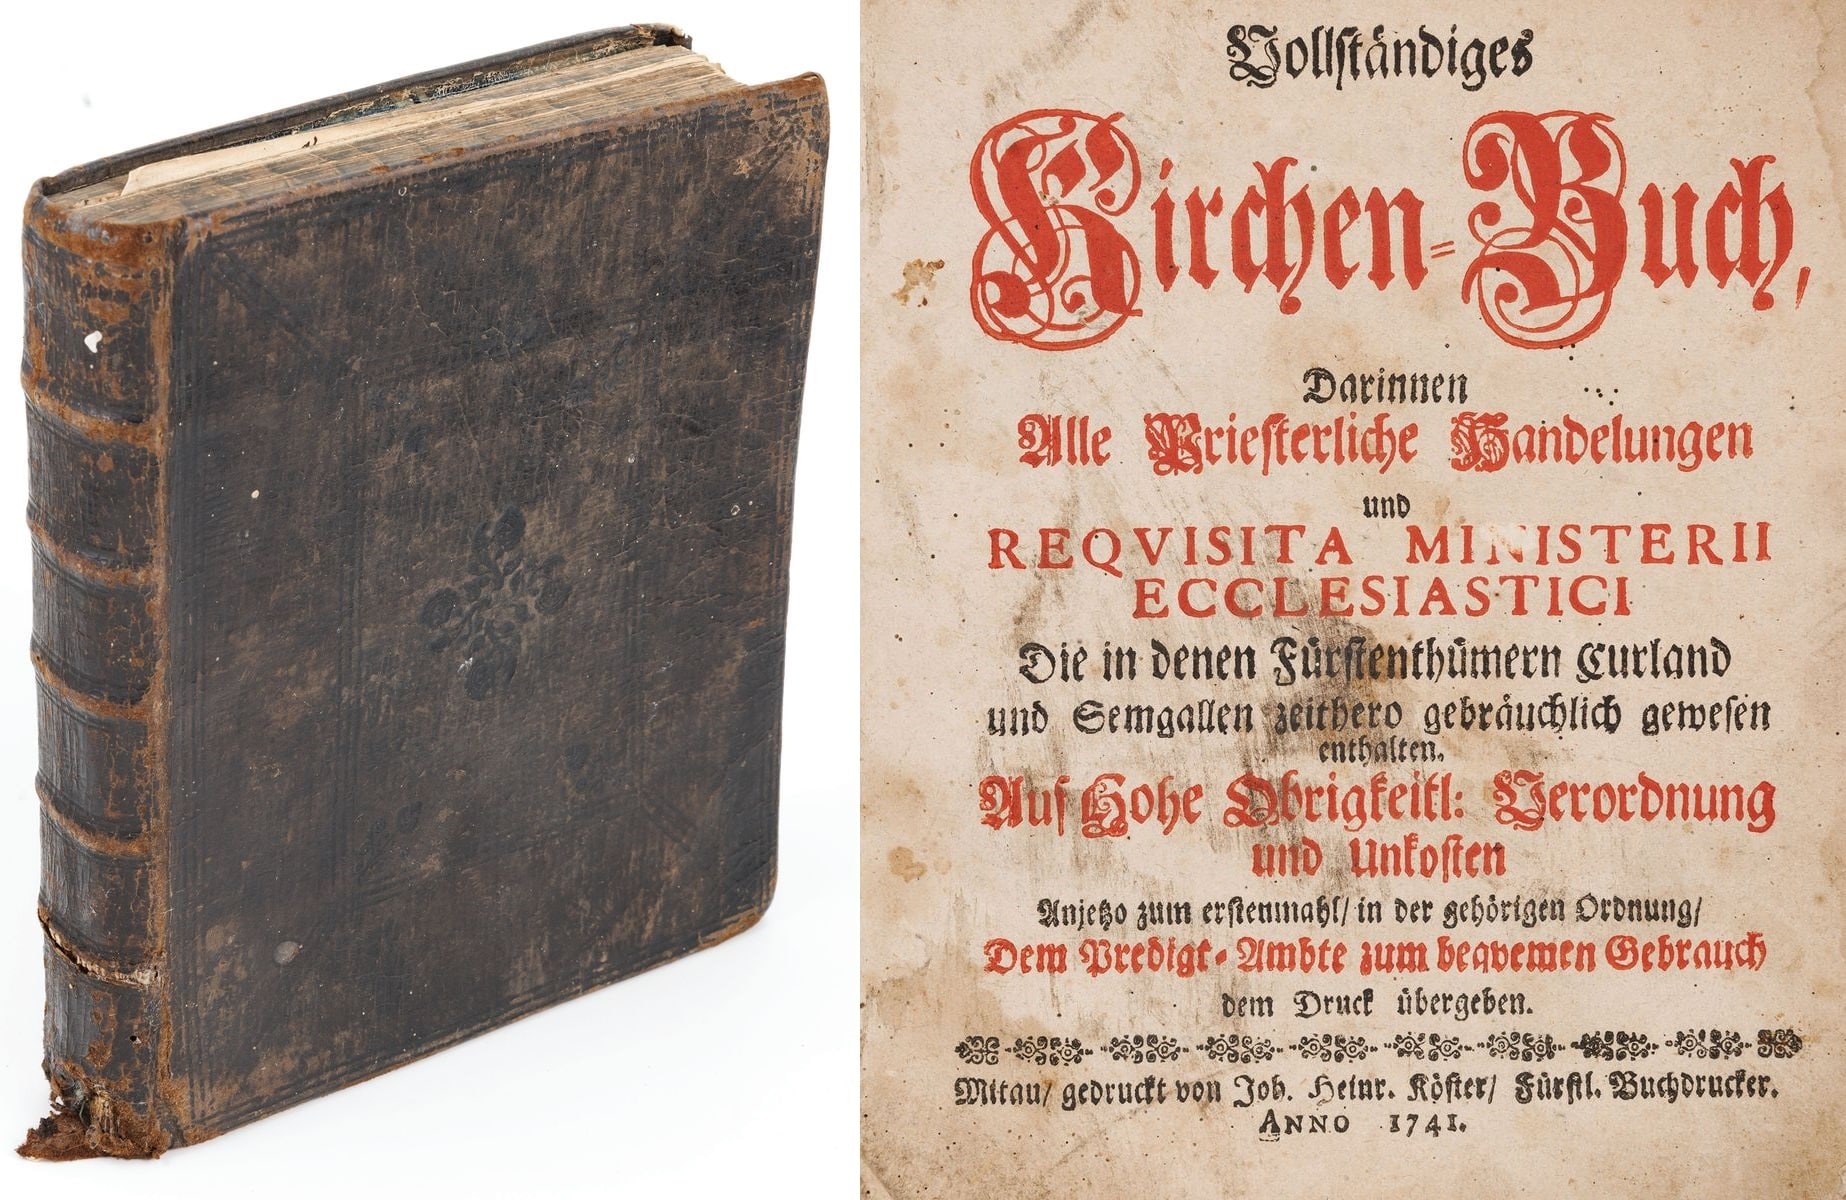 Vollständiges
Kirchen-Buch,
Darinnen
Alle Priesterliche Handelungen
und
REQVISITA MINISTERII
ECCLESIASTICI
Die in denen Fürstenthümern Curland
und Semgallen zeithero gebräuchlich gewesen
enthalten.
Auf Hohe Obrigkeitl: Verordnung
und Unkosten
Anjetzo zum erstenmahl/ in der gehörigen Ordnung/
Dem Predigt-Ambte zum beqvemen Gebrauch
dem Druck übergeben.
Mitau/ gedruckt von Joh. Heinr. Köster/ Fürstl. Buchdrucker.
ANNO 1741.